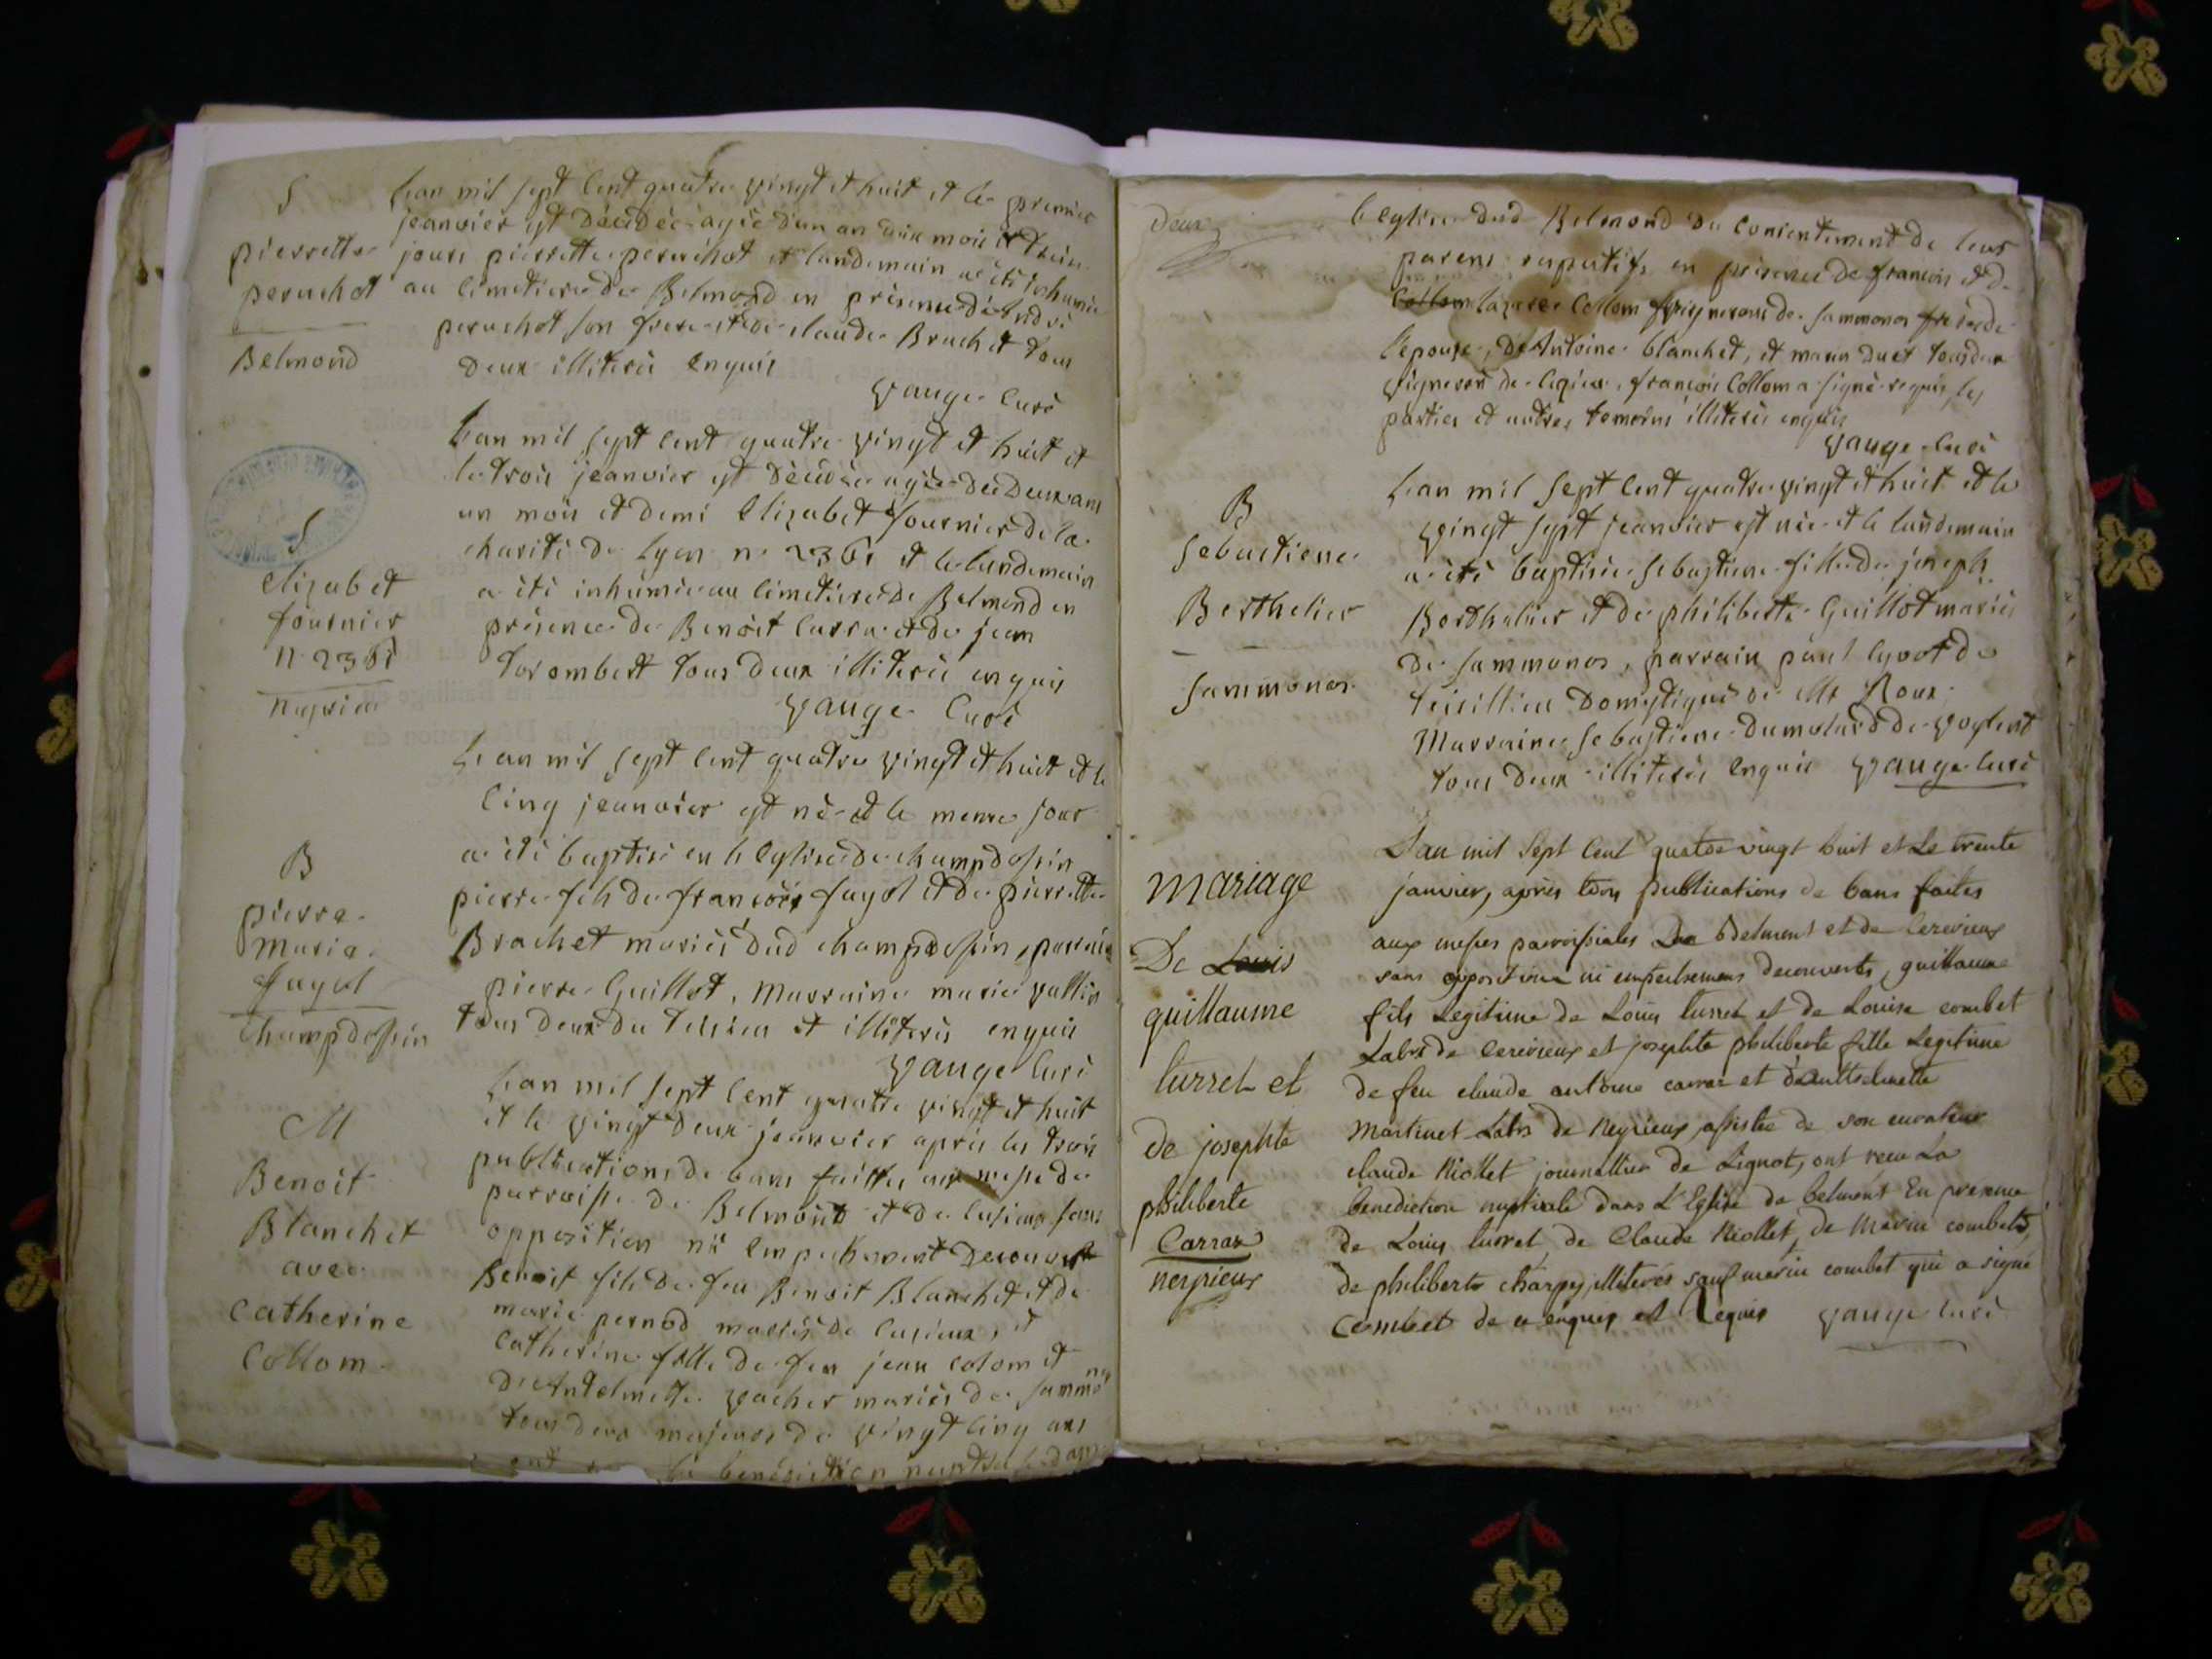 S
pierrette
peruchot
Belmond
Lan mil sept cent quatre vingt et huit et le premier
jeanvier est décédée agée d'un an dix mois et
jours pierrette peruchot et landemain a été inhumée
au cimetiere de Belmond en présence d'André
peruchot son frere et de claude Brachet tous
deux illiterés enquis
vauge Curé
S
Elizabet
fournier
n 2361
neyrieu
Lan mil sept cent quatre vingt et huit et
le trois jeanvier est décédée agée de deux ans
un mois et demi Elizabet fournier de la
charité de Lyon n 2361 et le landemain
a été inhumée au cimetiere de Belmond en
présence de Benoit Carra et de jean
Torombert tous deux illiterés enquis
vauge Curé
B
pierre
Marie
fayol
Champdossin
Lan mil sept cent quatre vingt et huit et le
cinq jeanvier est né et le meme jour
a été baptisé en l'eglise de champdossin
pierre fils de françois fayol et de pierrette
Brachet mariés dud champdossin, parrain
pierre Guillot, Marraine marie vallin
tous deux du et illiterés enquis
vauge Curé
M
Benoit
Blanchet
avec
Catherine
Collom
Lan mil sept cent quatre vingt et huit
et le vingt deux jeanvier après les trois
publications de bans faittes aux messe de
parroisse de Belmont et de sans
opposition ni empechement decouvert
Benoit fils de feu Benoit Blanchet et de
marie pernod mariés de et
Catherine fille de feu jean colom et
D'Antelmette vacher mariés de sammonos
tous deux majeurs de vingt cinq ans
ont la benediction nuptiale dans
Deux
l'eglise dud Belmond du consentement de leurs
parens respectifs en présence de françois et de
Collom lazare Collom vignerons de sammonos freres de
l'epouse, d'Antoine blanchet, et marin duet tous deux
vigneron de françois Collom a signé requis, les
parties et autres temoins illiterés enquis
vauge Curé
B
Sebastiene
Berthelier
Sammonos
Lan mil sept cent quatre vingt et huit et le
vingt sept jeanvier est née et le landemain
a été baptisée sebastiene fille de joseph
Berthelier et de philiberte Guillot mariés
de sammonos, parrain paul Cyvot de
domestique de Mr Roux
Marraine sebastiene dumolard de voglent
tous deux illiterés enquis vauge Curé
Mariage
De Louis
guillaume
turrel et
de josephte
philiberte
Carraz
neyrieux
L'an mil Sept Cent quatre vingt huit et Le trente
janvier, après trois publications de bans faites
aux messes parroissiales De Belmont et de Cerevieux
sans opposition ni empechemens decouverts, guillaume
fils Legitime de Louis turrel et de Louise combet
Labrs de Cerevieux et josephte philiberte fille Legitime
de feu claude antoine carraz et d'anthelmette
Martinet Labrs de Neyrieux, assistée de son curateur
claude Riollet journallier de Lignot, ont receu La
benediction nuptiale dans L'Eglise de belmont En presence
de Louis turrel, de Claude Riollet, de Marin combet,
de philiberte charpy, illiterés sauf marin combet qui a signé
combet de ce enquis et Requis vauge curé